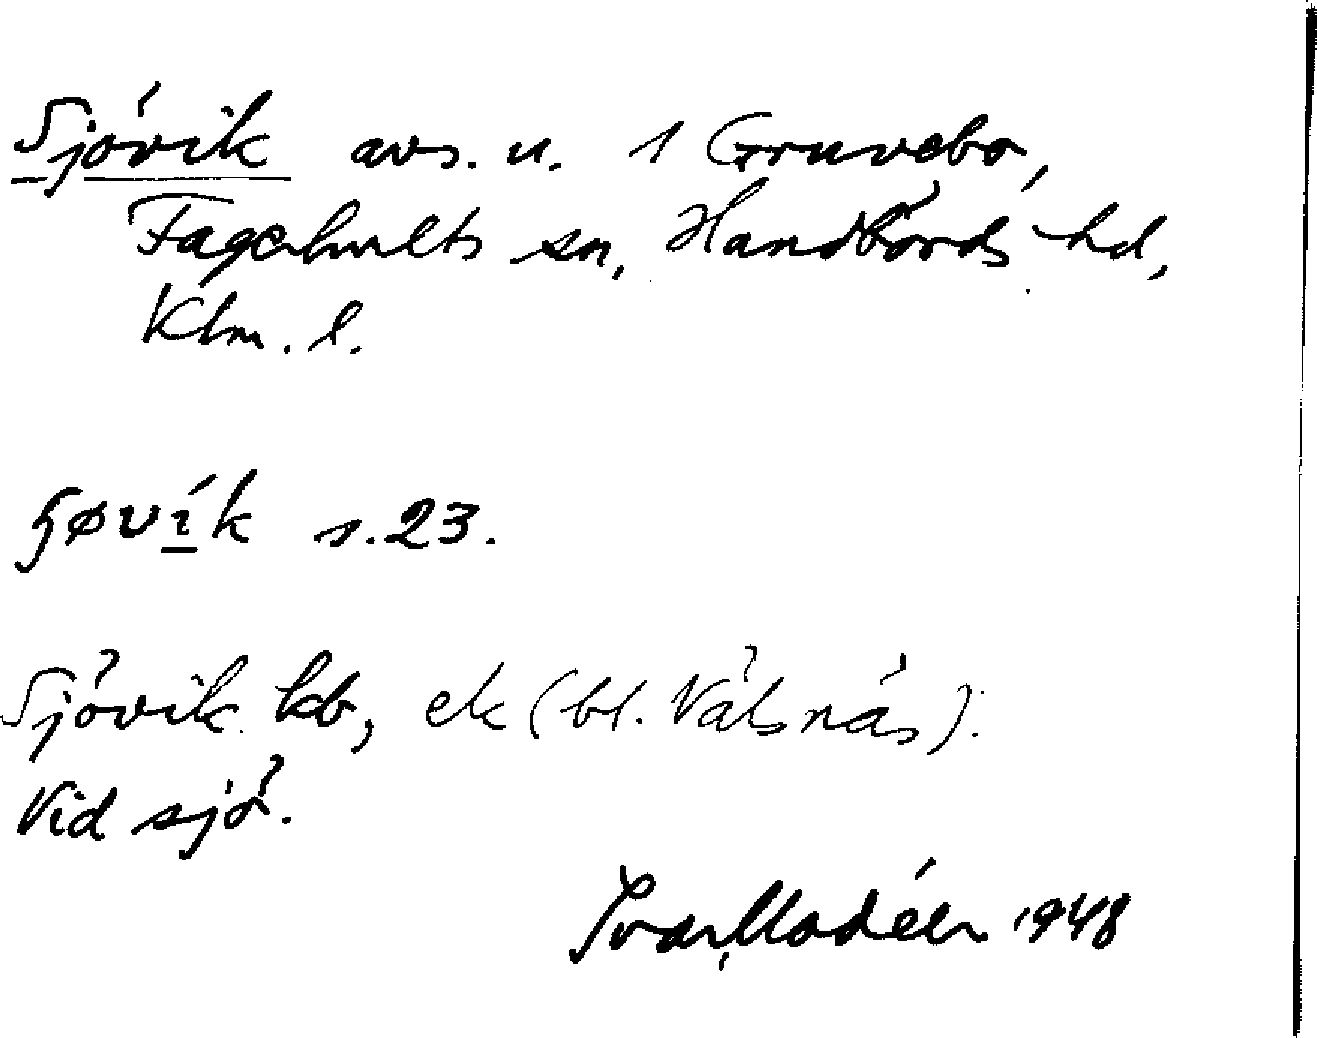 Sjövik avs. u. 1 Gruvebo,
Fagerhults sn, Handbörds hd,
Klm. l.
ʂøvík s. 23.
Sjövik kb, ek (bl. Välsnäs).
Vid sjö.
Ivar Modéer 1948